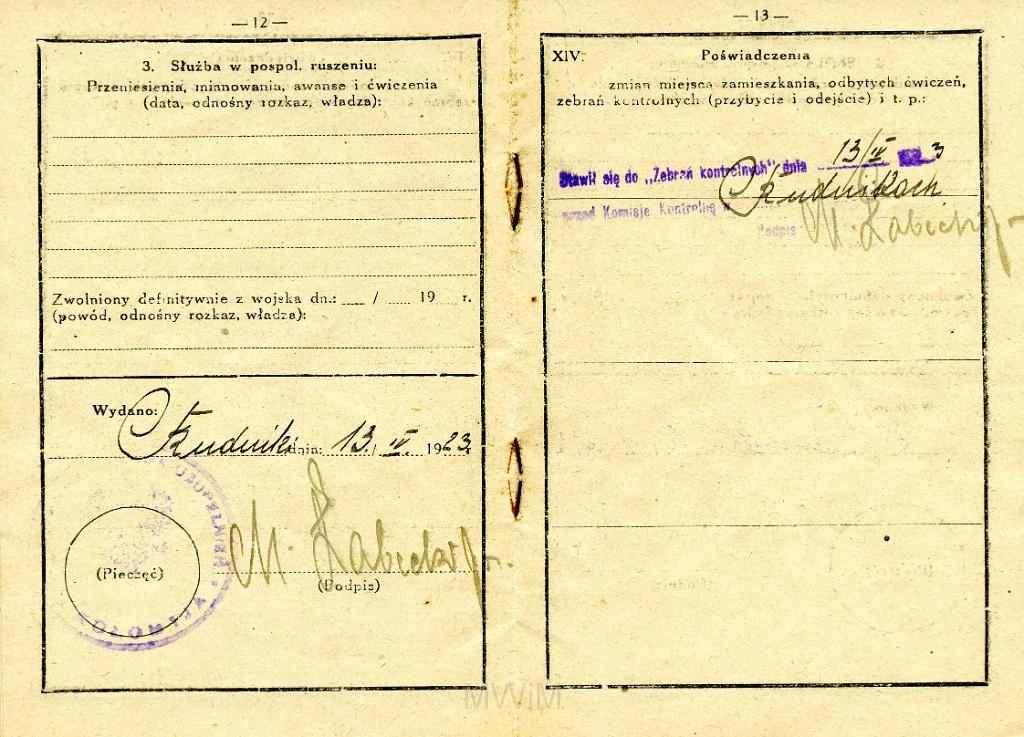 — 12 —
3. Służba w pospol. ruszeniu:
Przeniesienia, mianowania, awanse i ćwiczenia
(data, odnośny rozkaz, władza):
Zwolniony definitywnie z wojska dn.: / 19 r.
(powód, odnośny rozkaz, władza):
Wydano: Rudniki dnia: 13/IV. 1923.
UZUPEŁNIEŃ
(Pieczęć)
M. Łabęcki
(Podpis)
— 13 —
XIV. Poświadczenia
zmian miejsca zamieszkania, odbytych ćwiczeń,
zebrań kontrolnych (przybycie i odejście) i t. p.:
Stawił się do „Zebrań kontrolnych” dnia 13/IV 3
przed Komisje Kontrolną w Rudnikach
Podpis
MWiM